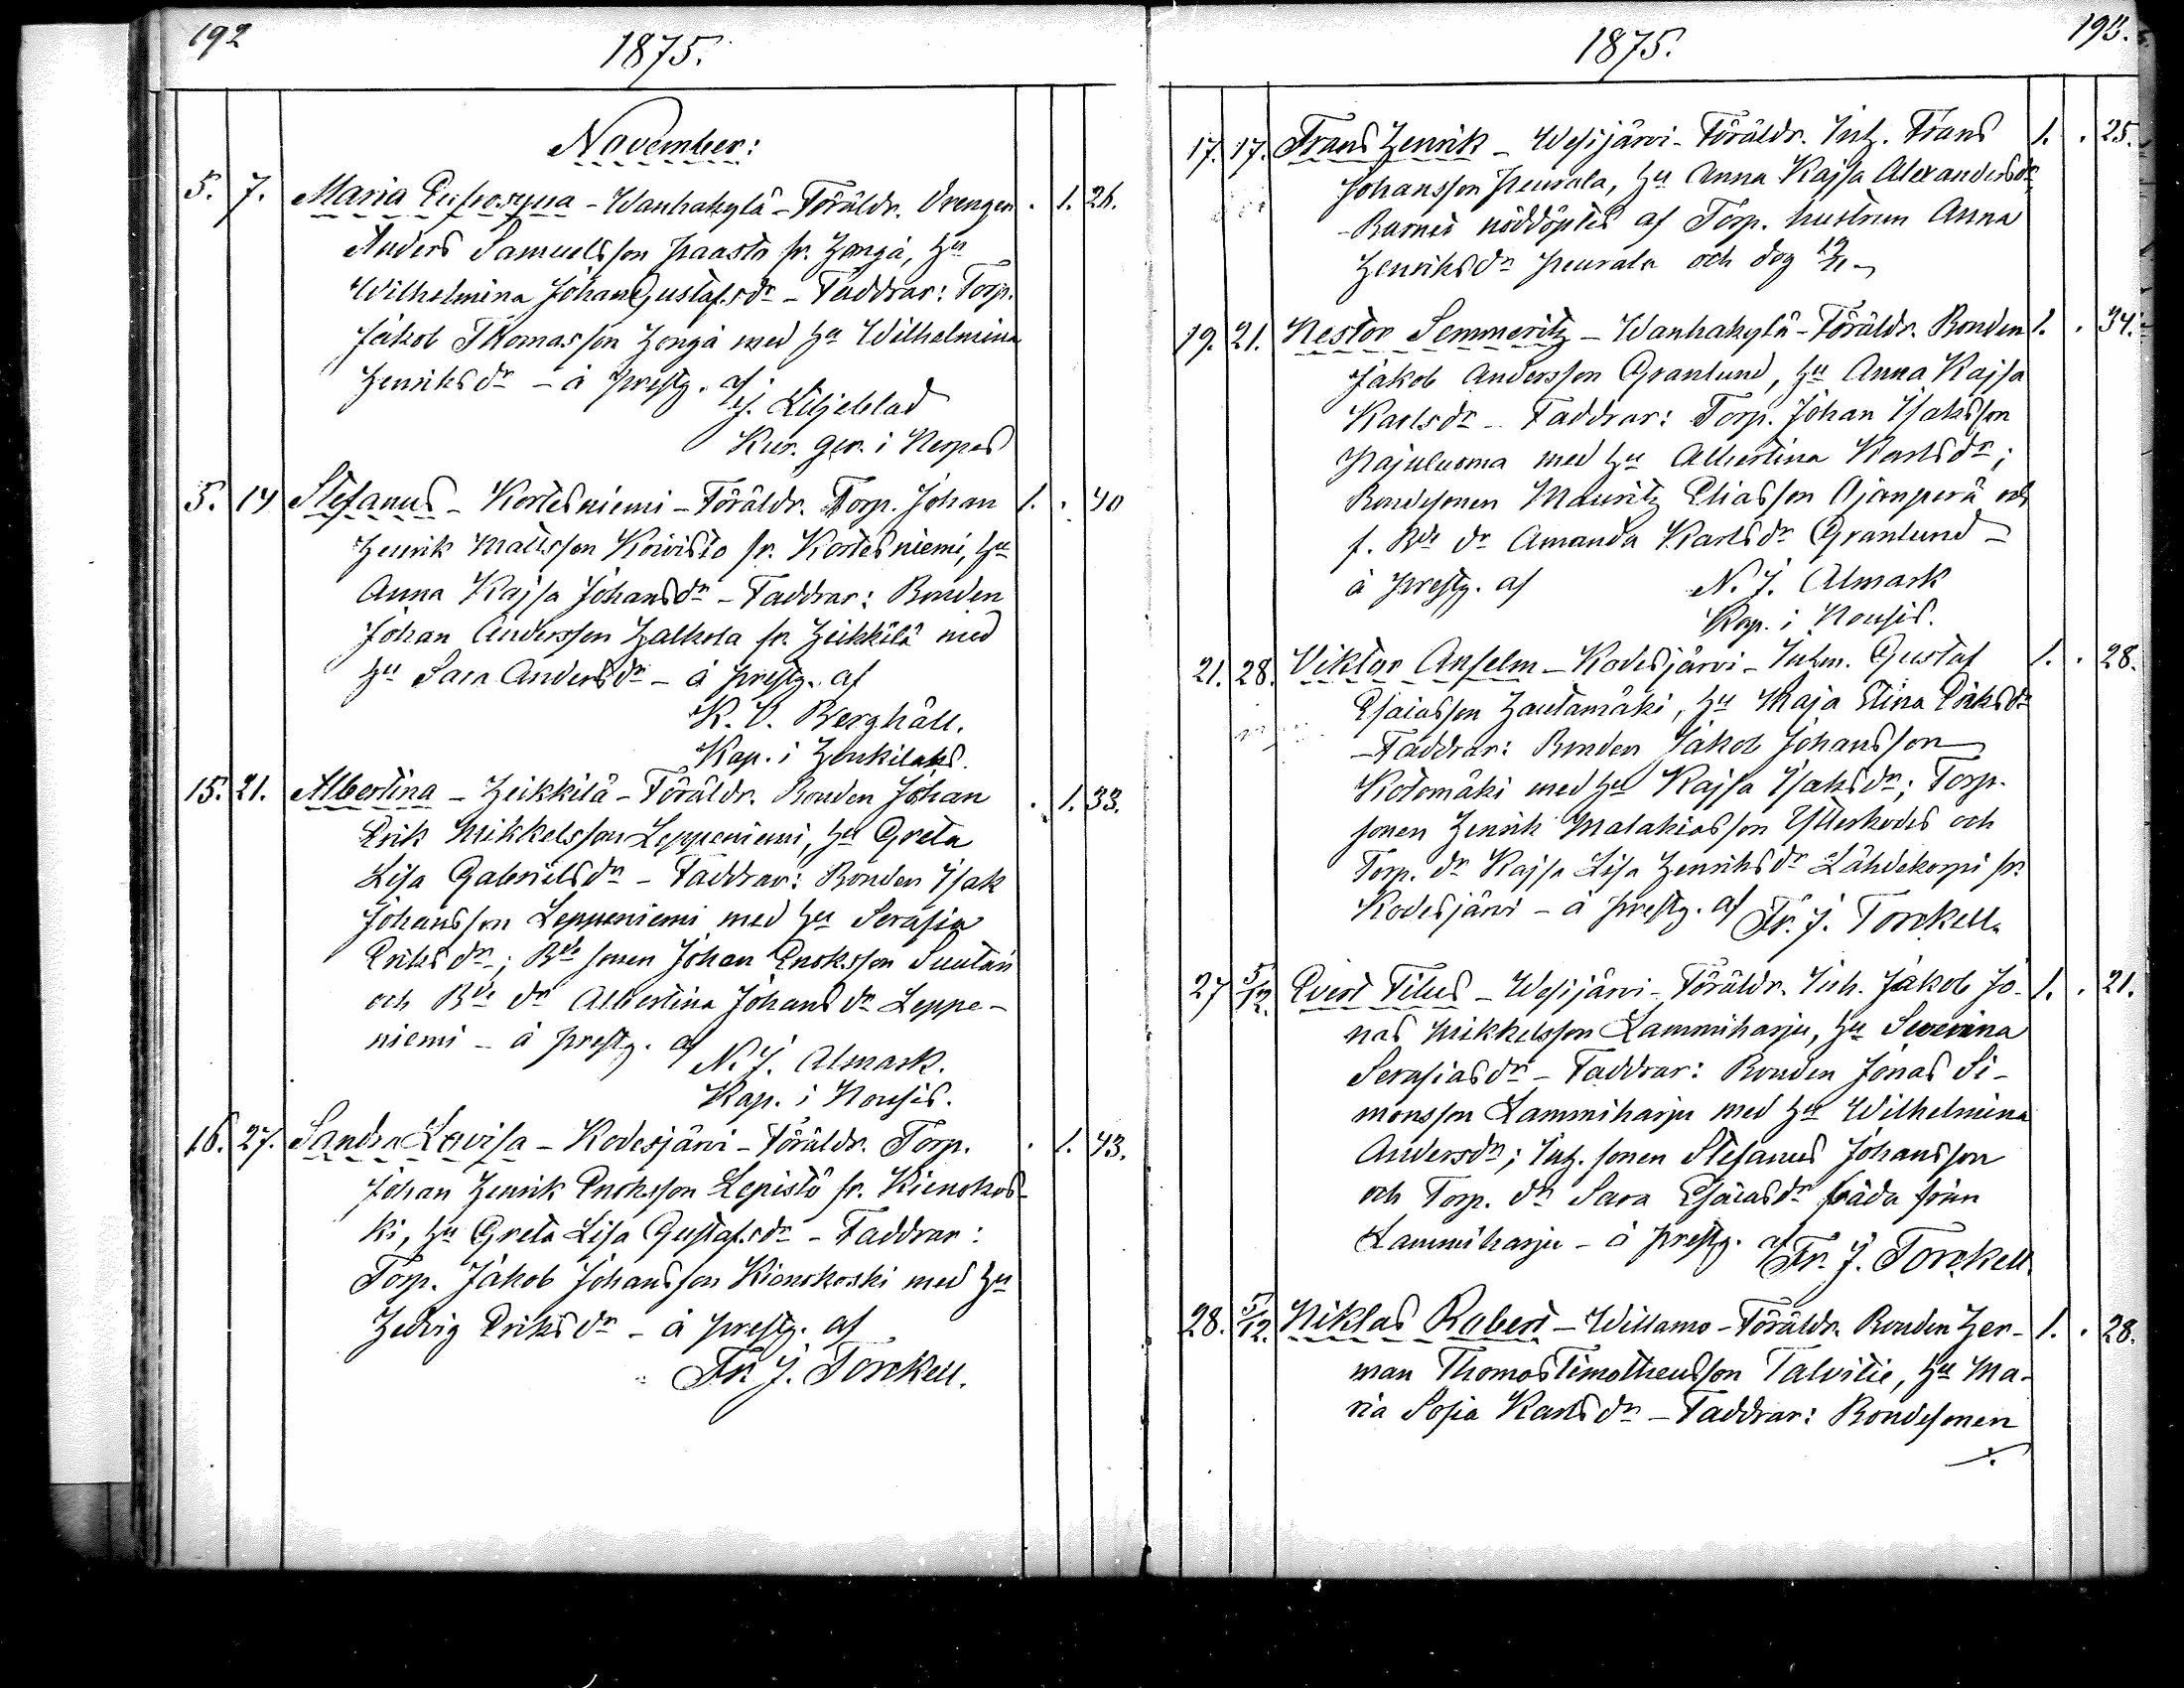 192
1875.
November:
5. 7. Maria Eufrosyna - Wanhakylä - Föräldr. Drengen . 1. 26.
Anders Samuelsson Haasto fr. Honga, Hu
Wilhelmina Johan Gustafsdr - Faddrar: Torp.
Jakob Thomasson Honga med Hu Wilhelmina
Henriksdr - å prestg. af
J. Liljeblad
Kur. ger. i Nerpes
5. 14 Stefanus - Kortesniemi - Föräldr. Torp. Johan 1. . 40
Henrik Mattsson Koivisto fr. Kortesniemi, Hu
Anna Kajsa Johansdr - Faddrar: Bonden
Johan Andersson Halkola fr. Heikkilä med
Hu Sara Andersdr - å prestg. af
K. V. Berghäll.
Kap. i Honkilaks.
15. 21. Albertina - Heikkilä - Föräldr. Bonden Johan . 1. 33.
Erik Mikkelsson Leppeniemi, Hu Greta
Lisa Gabrielsdr - Faddrar: Bonden Isak
Johansson Leppeniemi med Hu Serafia
Eriksdr; Bde sonen Johan Enoksson Suutari
och Bde dr Albertina Johansdr Leppe-
niemi - å prestg. af
N. J. Almark.
Kap. i Nousis.
16. 27. Sandra Lovisa - Kodesjärvi - Föräldr. Torp. . 1. 43.
Johan Henrik Enoksson Lepistö fr. Kienokos-
ki, Hu Greta Lisa Gustafsdr - Faddrar:
Torp. Jakob Johansson Kienokoski med Hu
Hedvig Eriksdr - å prestg. af
Fr. J. Torckell.
1875.
193.
17. 17. Frans Henrik - Wesijärvi - Föräldr. Inh. Frans 1. . 25.
Johansson Peurala, Hu Anna Kajsa Alexandersdr
- Barnet nöddöptes af Torp. hustrun Anna
Henriksdr Peurala och dog 19/11 -
19. 21. Nestor Semmeritz - Wanhakylä - Föräldr. Bonden 1. . 34.
Jakob Andersson Granlund, Hu Anna Kajsa
Karlsdr - Faddrar: Torp. Johan Isaksson
Pajuluoma med Hu Albertina Karlsdr;
Bondesonen Mauritz Eliasson Ojanperä och
f. Bde dr Amanda Karlsdr Granlund -
å prestg. af N. J. Almark
Kap. i Nousis.
21. 28. Viktor Anselm - Kodesjärvi - Inhm. Gustaf 1. . 28.
Esaiasson Hautamäki, Hu Maja Stina Eriksdr
- Faddrar: Bonden Jakob Johansson
Kotomäki med Hu Kajsa Isaksdr; Torp.
sonen Henrik Malakiasson Ytterkodes och
Torp. dr Kajsa Lisa Henriksdr Lähdekorpi fr.
Kodesjärvi - å prestg. af Fr. J. Torckell.
27 5/12. Evert Titus - Wesijärvi - Föräldr. Inh. Jakob Jo- 1. . 21.
nas Mikkelsson Lammiharju, Hu Severina
Serafiasdr - Faddrar: Bonden Jonas Si-
monsson Lammiharju med Hu Wilhelmina
Andersdr; Inh. sonen Stefanus Johansson
och Torp. dr Sara Esaiasdr båda från
Lammiharju - å prestg. af Fr. J. Torckell.
28. 5/12. Niklas Robert - Willamo - Föräldr. Bonden Her- 1. . 28.
man Thomas Timotheusson Talvitie, Hu Ma-
ria Sofia Karlsdr - Faddrar: Bondesonen